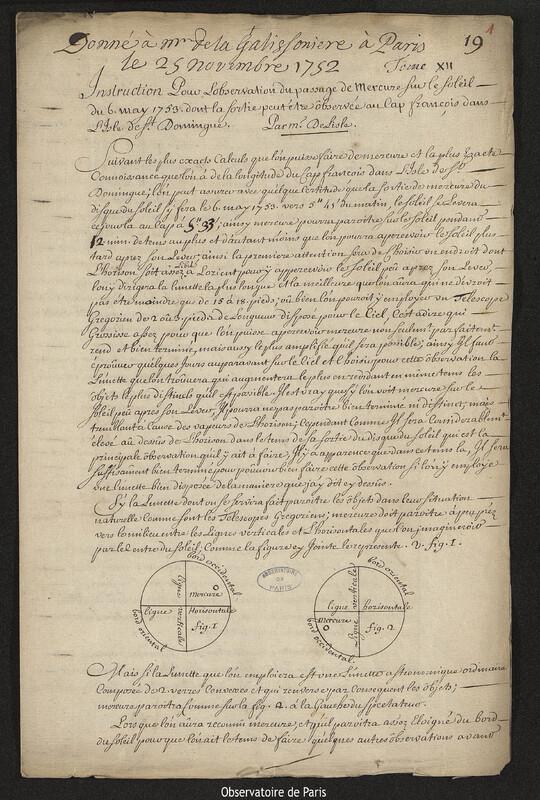 Donné à mr de la Galissoniere à Paris
19
1
le 25 novembre 1752
Tome XII
Instruction Pour L'observation du passage de Mercure sur le Soleil
du 6. may 1753. dont la sortie peut être observée au Cap françois dans
L'Isle de St. Domingue. Par mr. De Lisle.
Suivant les plus exacts Calculs que l'on puisse faire de mercure et la plus Exacte
Connoissance que l'on à de la longitude du Cap francois dans L'Isle de St.
Domingue; l'on peut assurer avec quelque Certitude que la sortie de mercure du
disque du Soleil s'y fera le 6. may 1753. vers 5h 45' du matin, le soleil se levera
ce jour la au Cap à 5h 33'; ainsy mercure pourra paroitre sur le soleil pendant
12 min. de tems au plus et d'autant moins que l'on pourra appercevoir le Soleil plus
tard apres son Lever; ainsi la premiere attention sera de Choisir un endroit dont
L'horison soit assez Libre à Lorient pour y appercevoir le Soleil peu apres son Lever,
l'on y dirigera la lunette la plus longue et la meilleure que l'on aura qui ne devroit
pas etre moindre que de 15 à 18. pieds; où bien l'on pouroit y employer un Telescope
Gregorien de 2 où 3 pieds de Longueur disposé pour le Ciel, C'est à dire qui
Grossisse assez pour que l'on puisse appercevoir mercure non seulement parfaitement
rond et bien terminé, mais aussy le plus amplifié qu'il sera possible; ainsy Il faut
eprouver quelques Jours auparavant sur le Ciel et Choisir pour cette observation la
Lunette que l'on trouvera qui augmentera le plus en rendant en meme tems les
objets le plus distincts qu'il est possible. Il est vray que si l'on voit mercure sur le
Soleil peu apres son Lever, Il pourra ne pas paroitre bien terminé ni distinct, mais
tremblant à Cause des vapeurs de L'horison; Cependant Comme Il sera Considerablement
élevé au dessus de L'horison dans le tems de sa sortie du disque du Soleil qui est la
principale observation qu'il y ait à faire, Il y à apparence que dans ce tems la, Il sera
suffisament bien terminé pour pouvoir bien faire cette observation si l'on y employe
une lunette bien disposée de la maniere que j'ay dit cy dessus.
Si la Lunette dont on se servira fait paroitre les objets dans leur situation
naturelle comme sont les Telescopes Gregoriens; mercure doit paroitre à peu près
vers le milieu entre les Lignes verticales et L'horisontales que l'on imagineroit
par le Centre du Soleil; Comme la figure cy Jointe le represente. V. fig. 1.
bord occidental
Mercure
ligne Horisontale
ligne verticale
fig. 1
bord oriental
OBSERVATOIRE
DE
PARIS
bord occidental
ligne horizontale
ligne verticale
Mercure
fig. 2
bord occidental
Mais si la Lunette que l'on emploiera est une Lunette astronomique ordinaire
Composée de 2 verres Convexes et qui renverse par consequent les objets;
mercure paroitra Comme sur la fig. 2. à la Gauche du spectateur.
Lorsque l'on aura reconnu mercure, et qu'il paroitra assez Eloigné du bord
du Soleil pour que l'on ait le tems de faire quelques autres observations avant
Observatoire de Paris